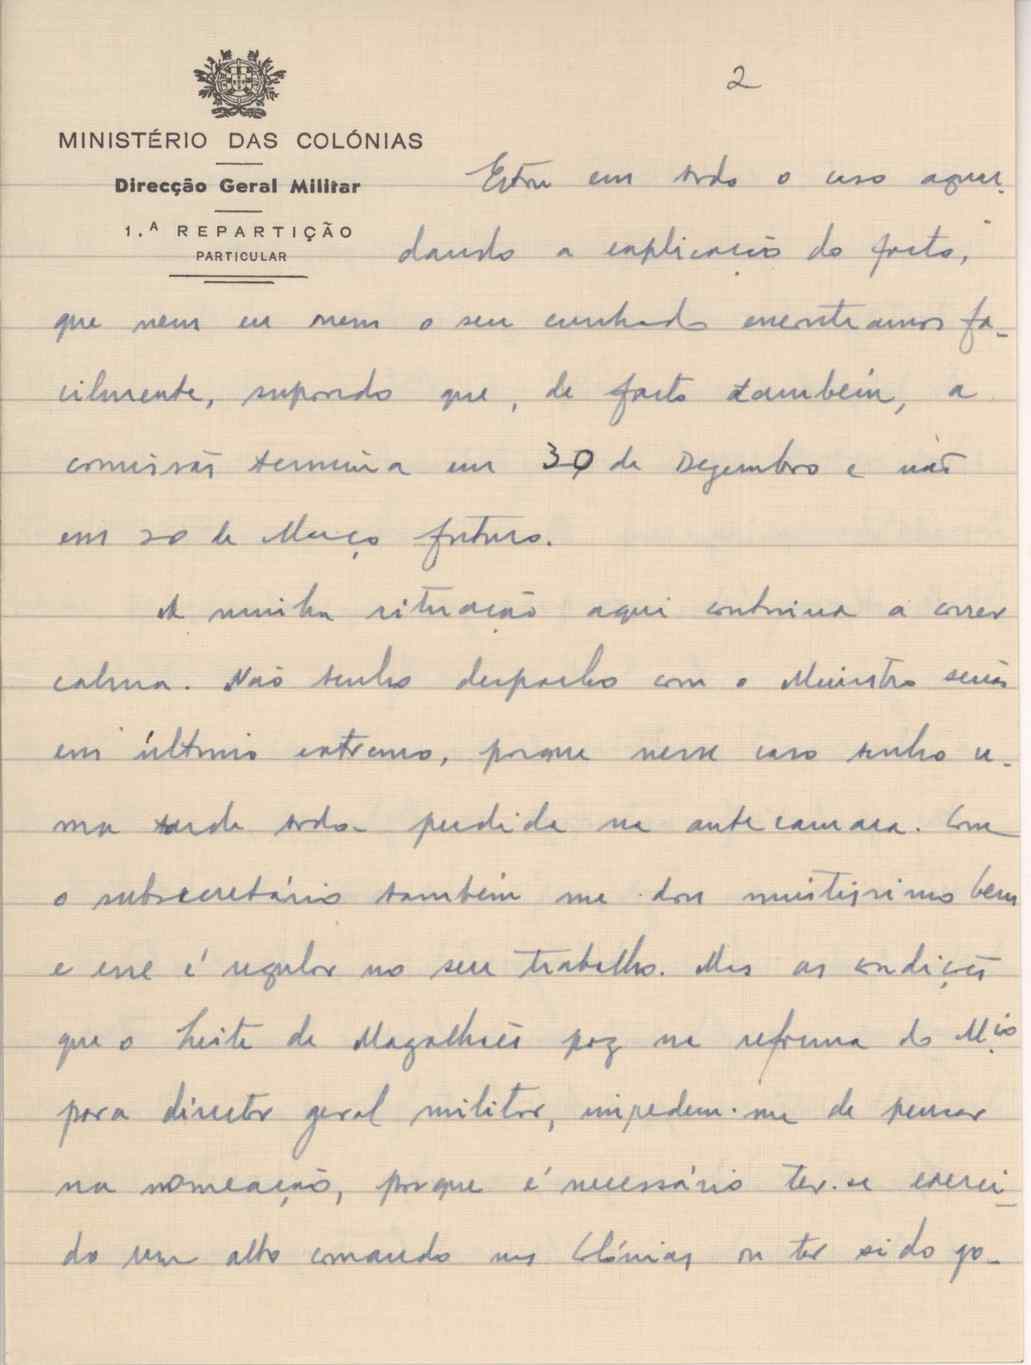 2
MINISTÉRIO DAS COLÓNIAS
Direcção Geral Militar
1.ª REPARTIÇÃO
PARTICULAR
Estou em todo o caso aguar-
dando a explicação do facto,
que nem eu nem o seu cunhado encontramos fa-
cilmente, supondo que, de facto também, a
comissão termina em 30 de Dezembro e não
em 20 de Março futuro.
A minha situação aqui continua a correr
calma. Não tenho despacho com o Ministro senão
em último extremo, porque nesse caso tenho u-
ma tarde toda perdida na antecamara. Com
o subsecretário também me dou muitissimo bem
e esse é regular no seu trabalho. Mas as condições
que o Leite de Magalhães poz na reforma do Mio
para director geral militar, impedem-me de pensar
na nomeação, porque é necessário ter-se exerci-
do um alto comando nas Colónias ou ter sido go-